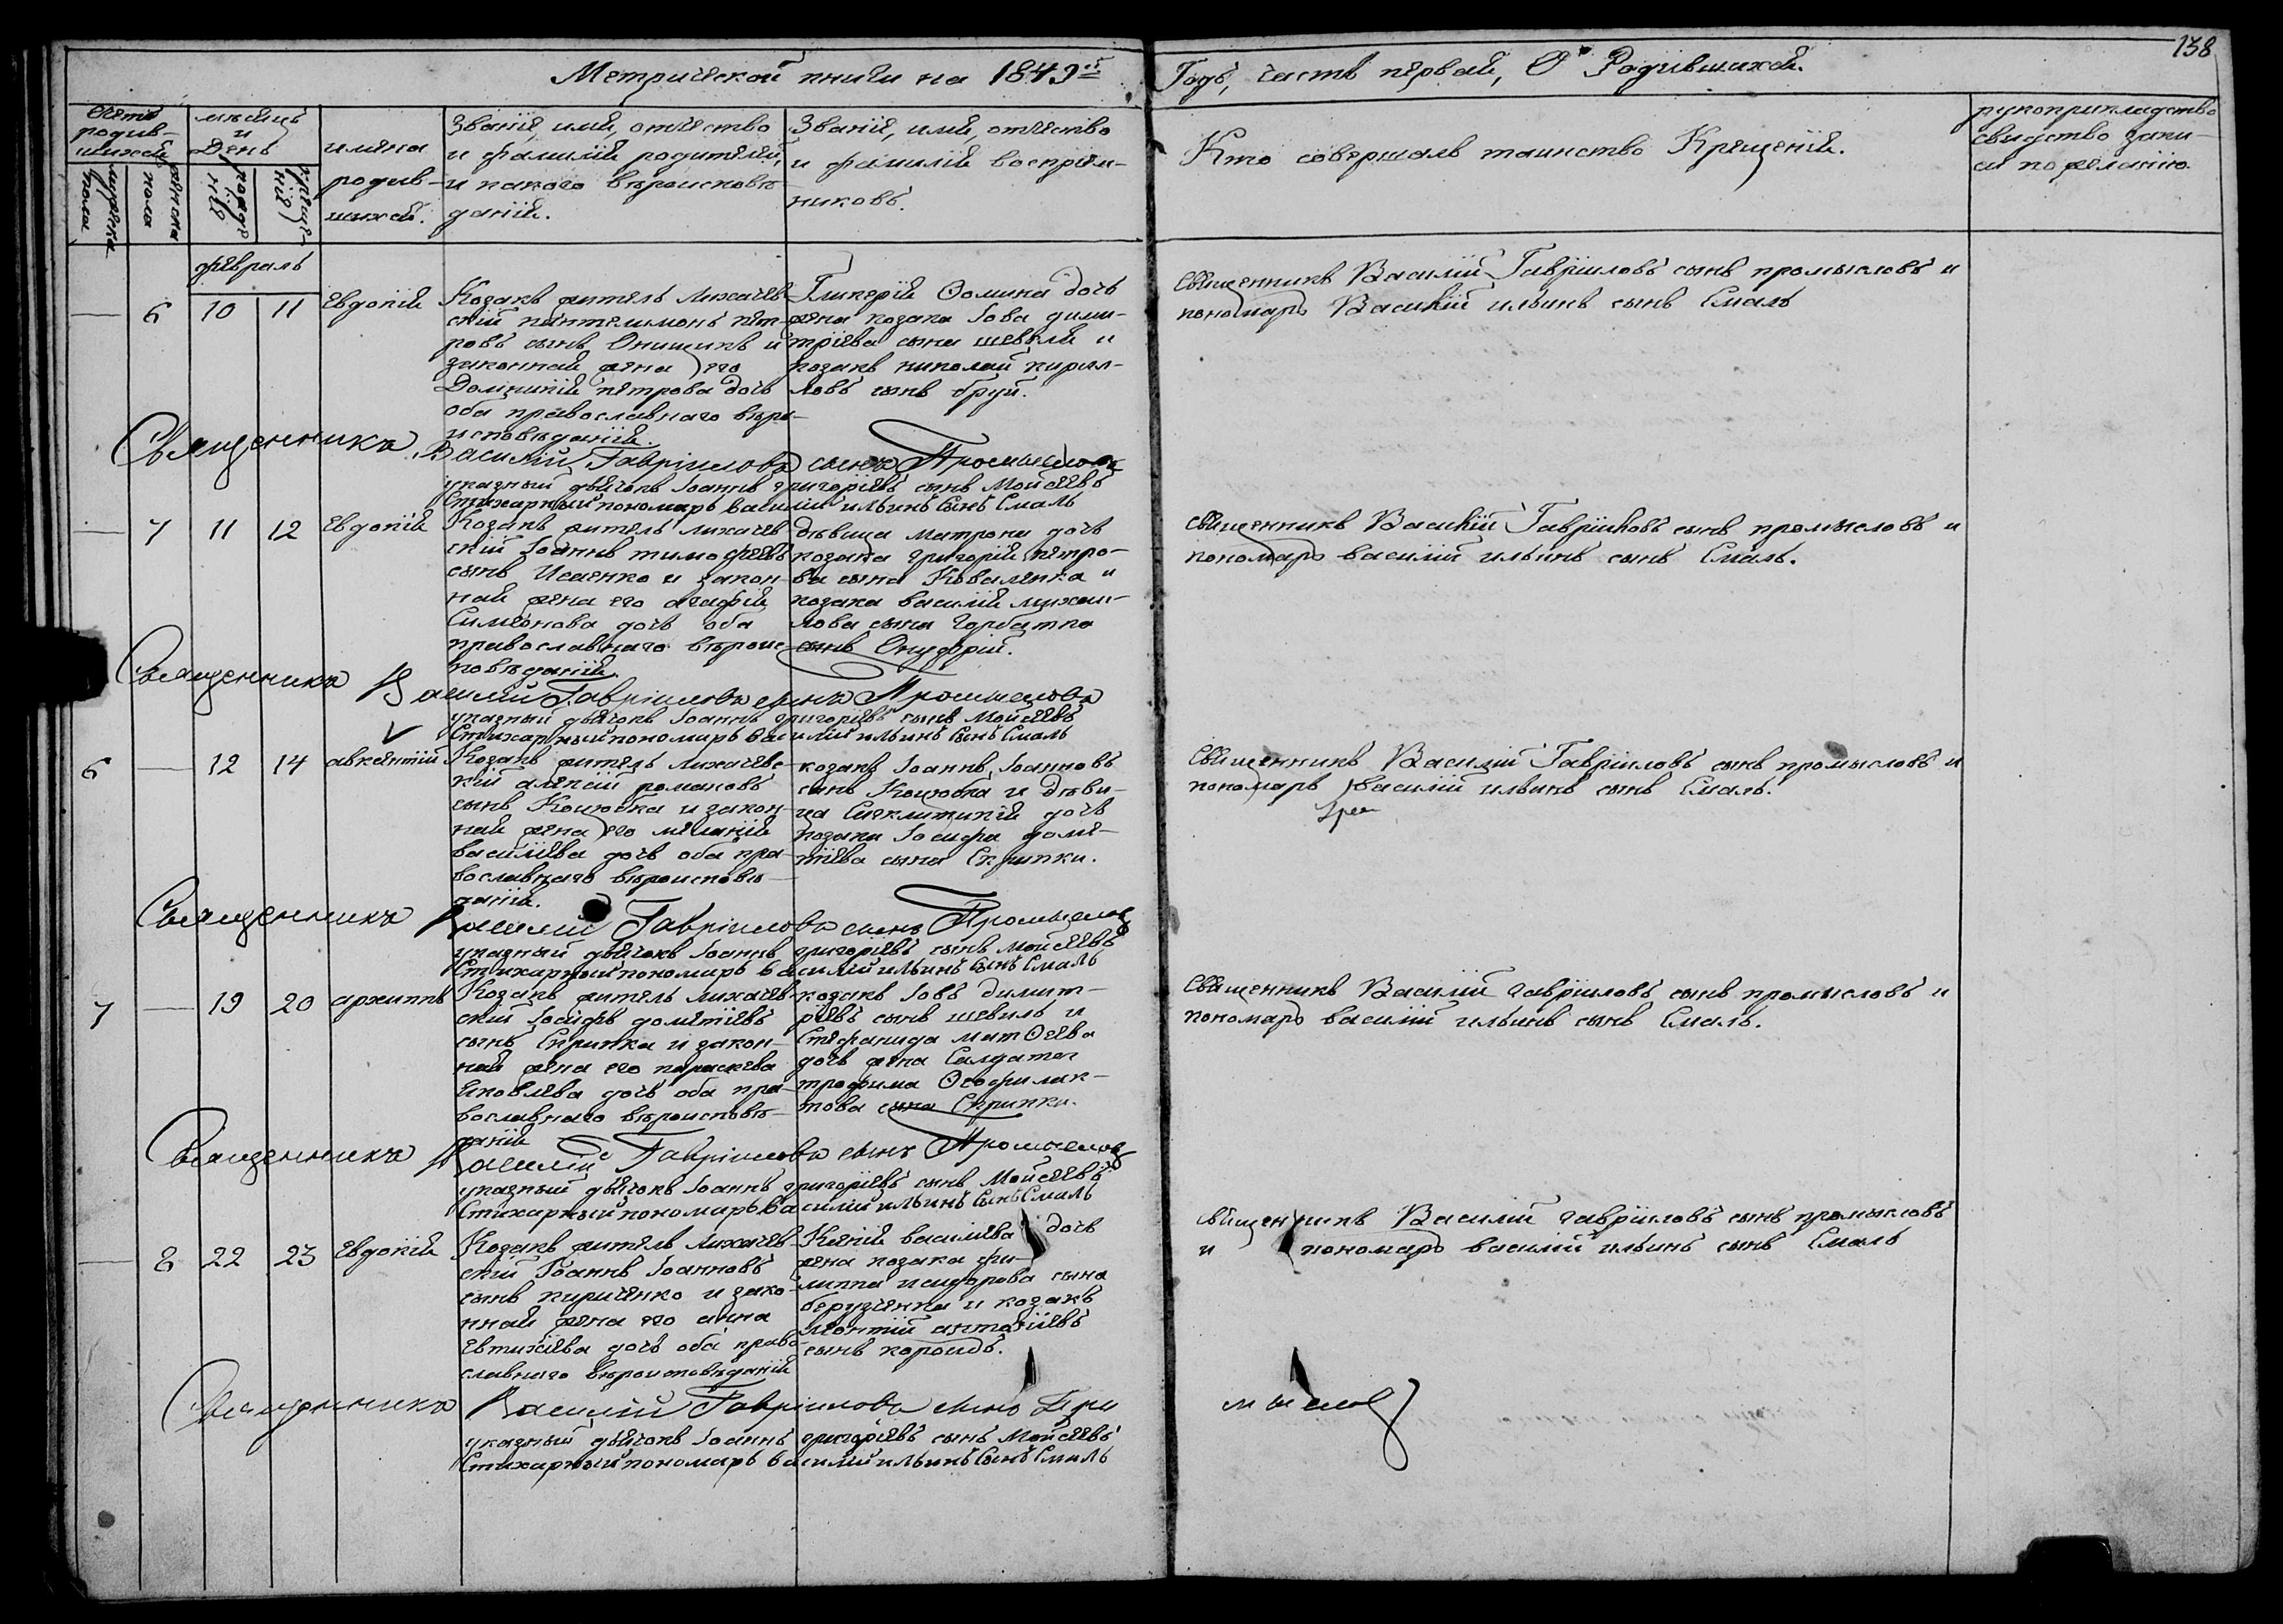 138
Метрической книги на 1849й Годъ, часть первая, О Родившихся.
Счетъ родившихся
мужеска пола
женска пола
мѣсяцъ и День
рождения
крещения
имена родившихся.
Званіе, имя, отчество
и фамилія родителей,
и какого вѣроисповѣ-
данія.
Званіе, имя, отчество
и фамилія воспріем-
никовъ.
Кто совершалъ таинство Крещенія.
рукоприкладство
свидетелей записи
по желанію.
февраль
— 6 10 11 Евдокія
Козакъ житель лихачев-
скій пантелимонъ пет-
ровъ сынъ Онищикъ и
законная жена его
Домникія петрова дочь
оба православнаго вѣро-
исповѣданія.
Гликерія Ѳомина дочь
жена козака Іова дими-
тріева сына шевеля и
козакъ николай кирил-
ловъ сынъ бруй.
Священникъ Василій Гавріиловъ сынъ промысловъ и
пономарь Василій ильинъ сынъ Смаль
Священникъ Василій Гавріиловъ сынъ Промысловъ
указный дьячокъ Іоаннъ григоріевъ сынъ Мойсеевъ
Стихарный пономарь василій ильинъ Сынъ Смаль
— 7 11 12 Евдокія
Козакъ житель лихачев
скій Іоаннъ тимофеевъ
сынъ Исаенко и закон-
ная жена его агафія
Симеонова дочь оба
православнаго вѣроис-
повѣданія.
дѣвица матрона дочь
козака григорія петро-
ва сына Коваленка и
козака василія михаи-
лова сына горбатка
сынъ Онуфрій.
Священникъ Василій Гавріиловъ сынъ промысловъ и
пономарь василій ильинъ сынъ Смаль.
Священникъ Василій Гавріиловъ сынъ Промысловъ
указный дьячокъ Іоаннъ григоріевъ сынъ Мойсеевъ
Стихарный пономарь василій ильинъ Сынъ Смаль
6 — 12 14 авксентій
Козакъ житель лихачевс-
кій алексій романовъ
сынъ Коцюбка и закон-
ная жена его меланія
василіева дочь оба пра-
вославнаго вѣроисповѣ-
данія.
козакъ Іоаннъ Іоанновъ
сынъ Коцюбка и дѣви-
ца Синклитикія дочь
козака Іосифа доме-
тіева сына Скрипки.
Священникъ Василій Гавріиловъ сынъ промысловъ и
пономарь василій ильинъ сынъ Смаль.
Священникъ Василій Гавріиловъ сынъ Промысловъ
указный дьячокъ Іоаннъ григоріевъ сынъ мойсеевъ
Стихарный пономарь василій ильинъ Сынъ Смаль
7 — 19 20 архиппъ
Козакъ житель лихачев-
скій Іосифъ дометіевъ
сынъ Скрипка и закон-
ная жена его параскева
Яковлева дочь оба пра-
вославнаго вѣроисповѣ-
данія
козакъ Іовъ димит-
ріевъ сынъ шевель и
Стефанида матѲеева
дочь жена Салдата
трофима Ѳеофилак-
това сына Скрипки.
Священникъ Василій гавріиловъ сынъ промысловъ и
пономарь василій ильинъ сынъ Смаль.
Священникъ Василій Гавріиловъ сынъ Промысловъ
указный дьячокъ Іоаннъ григоріевъ сынъ Мойсеевъ
Стихарный пономарь василій ильинъ Сынъ Смаль
— 8 22 23 Евдокія
Козакъ житель лихачев
скій Іоаннъ Іоанновъ
сынъ кириченко и зако-
нная жена его анна
Евтихіева дочь оба право
славнаго вѣроисповѣданія
Ксенія василіева дочь
жена козака фи-
липпа исидорова сына
берузенка и козакъ
леонтій антоніевъ
сынъ короидъ.
священникъ Василій гавріиловъ сынъ промысловъ
и пономарь василій ильинъ сынъ Смаль
Священникъ Василій Гавріиловъ сынъ Промысловъ
указный дьячокъ Іоаннъ григоріевъ сынъ Мойсеевъ
Стихарный пономарь василій ильинъ Сынъ Смаль